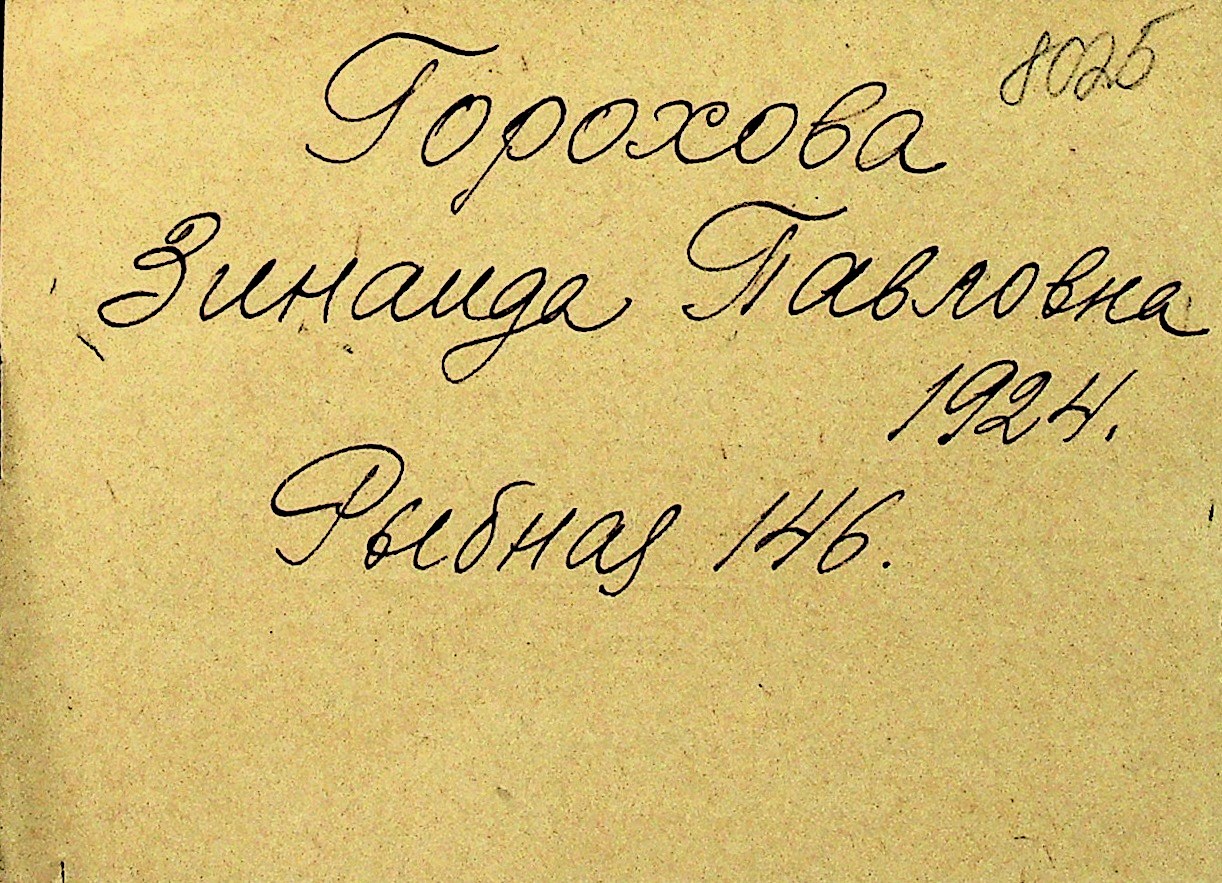 8025
Горохова
Зинаида Павловна
1924.
Рыбная 146.